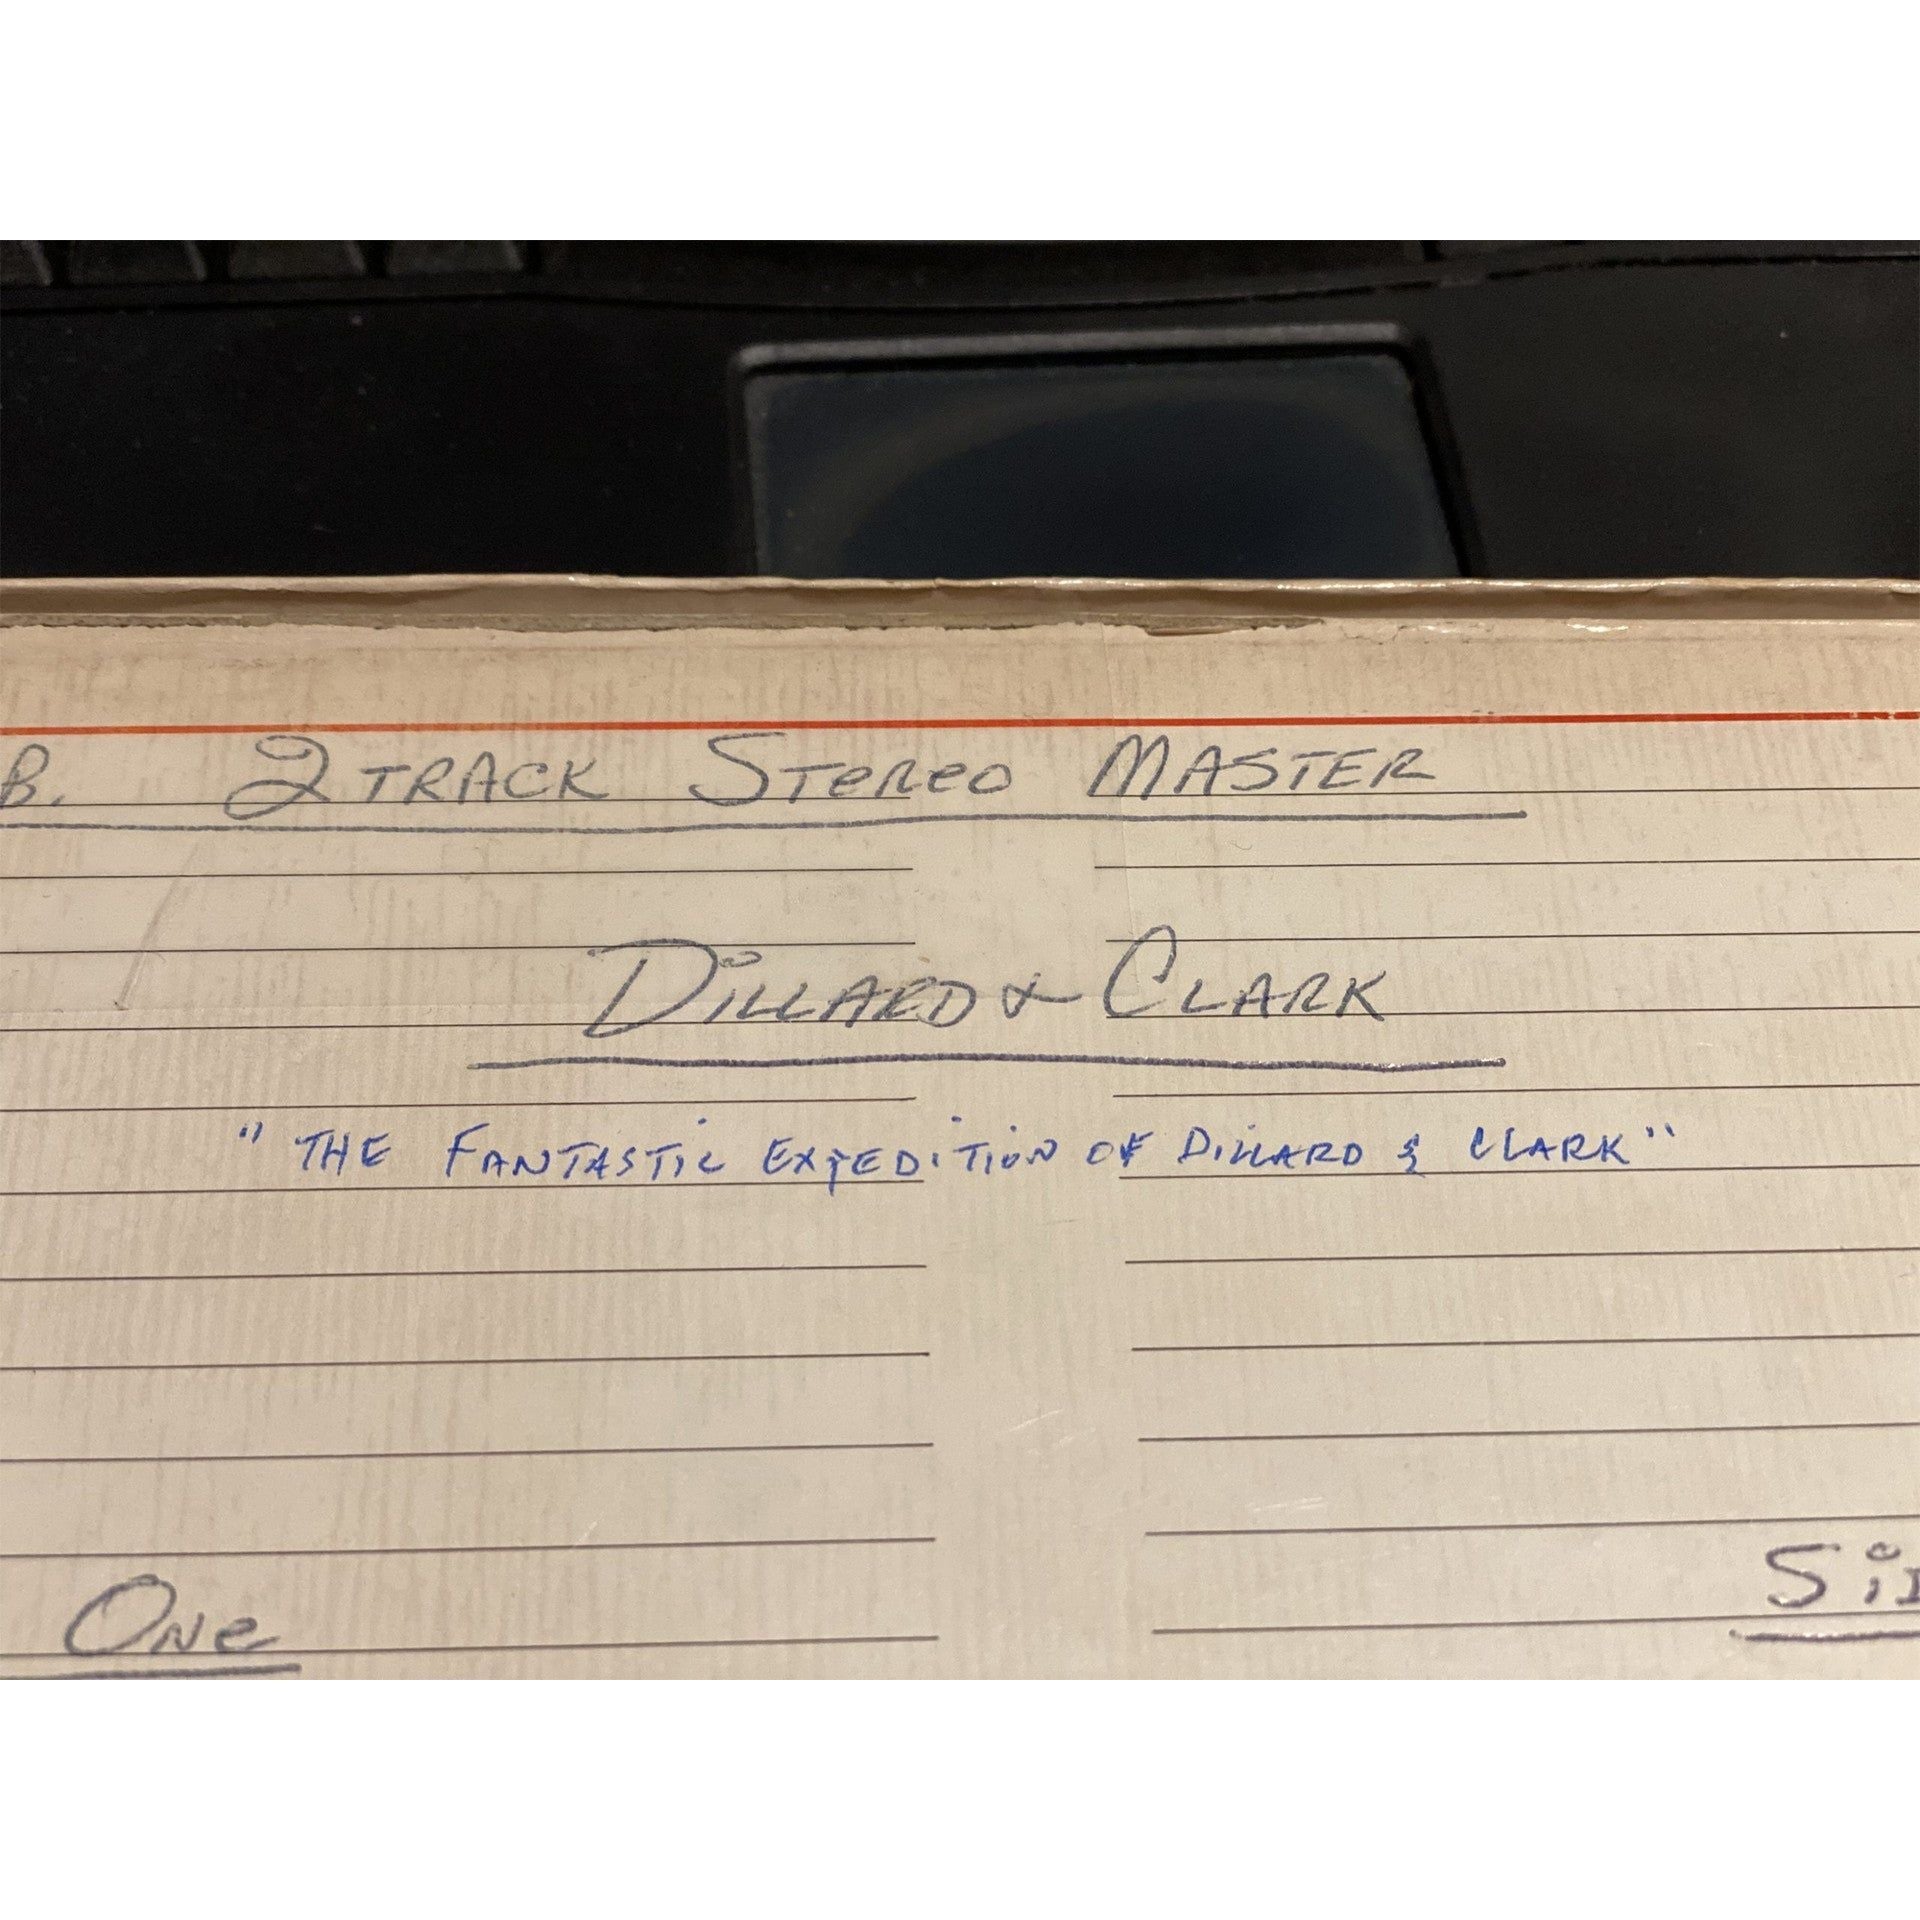 B. 2 TRACK STEREO MASTER
DILLARD & CLARK
"THE FANTASTIC EXPEDITION OF DILLARD & CLARK"
ONE
SID